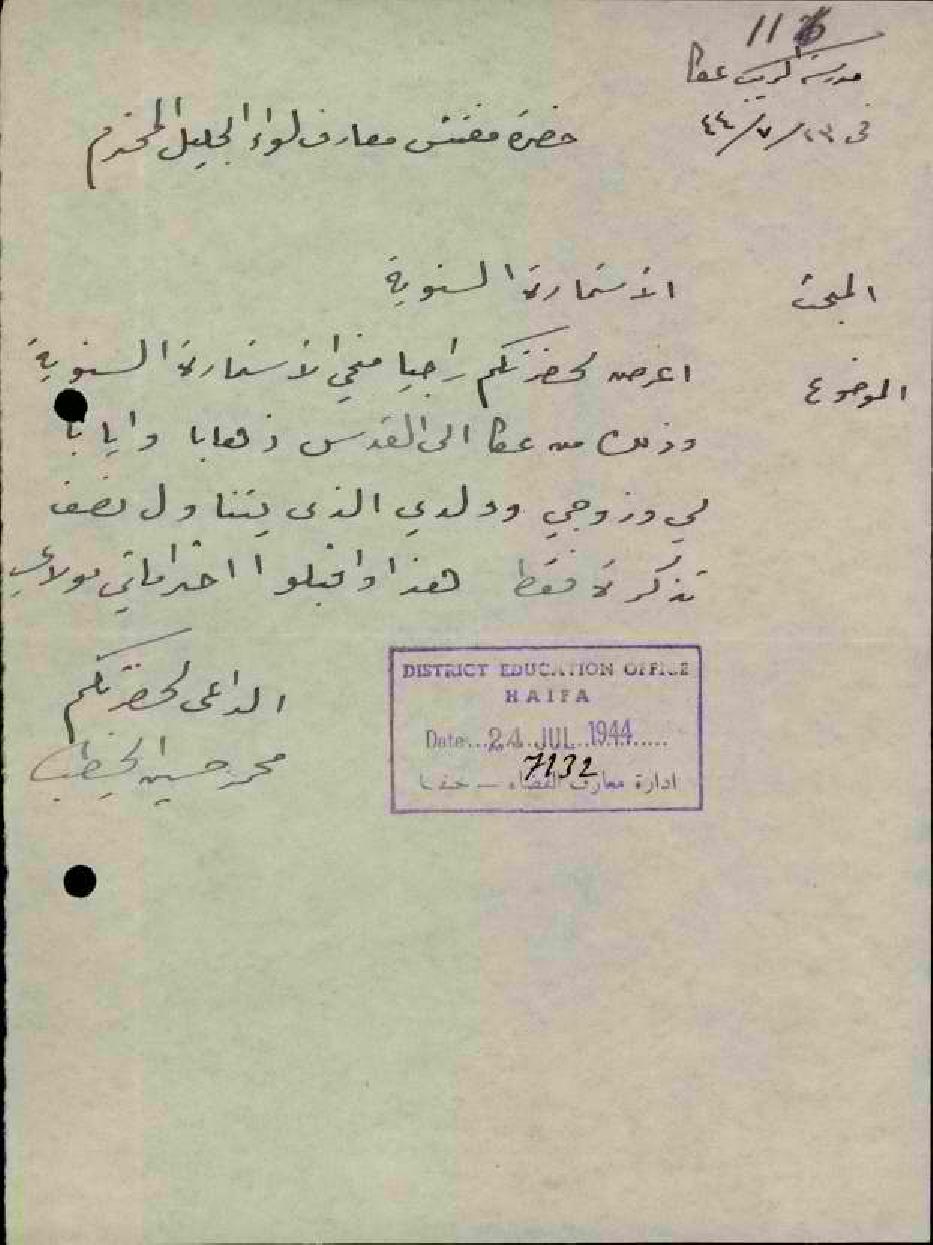 116
مدرسة عكا
في ٢٣/٧/٤٤
حضرة مفتش معارف لواء الجليل المحترم
المبحث الاستمارة السنوية
الموضوع اعرض لحضرتكم راجيا منحي الاستمارة السنوية
وذلك من عكا الى القدس ذهابا وايابا
لي وزوجي وولدي الذى يتناول نصف
تذكرة فقط هذا واقبلوا احتراماتي مولاي
الداعى لحضرتكم
محمد حسين الخطيب
DISTRICT EDUCATION OFFICE
HAIFA
Date...24 JUL 1944.....
7132
ادارة معارف القضاء — حيفا